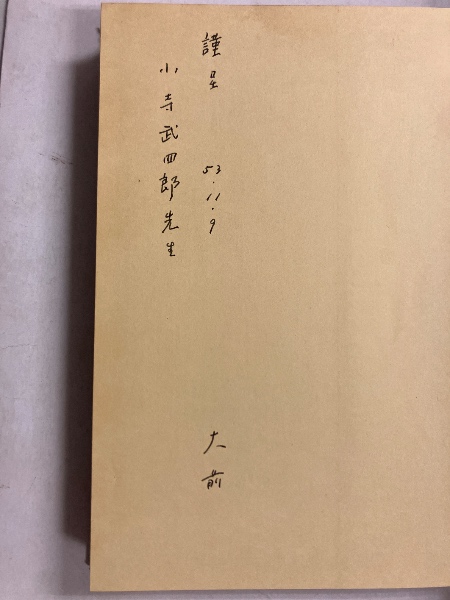 謹呈 53.11.9 大前
小寺武四郎先生